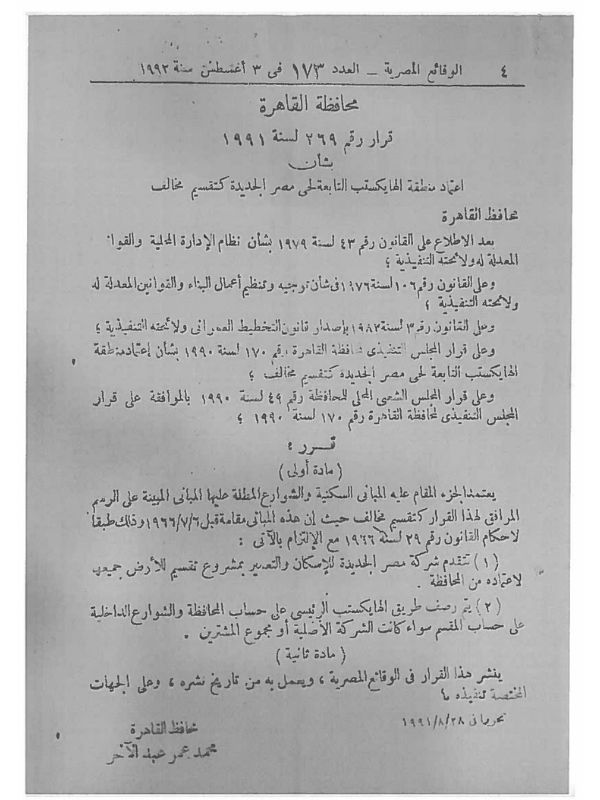 ٤ الوقائع المصرية ــ العدد ١٧٣ فى ٣ أغسطس سنة ١٩٩٢
محافظة القاهرة
قرار رقم ٢٦٩ لسنة ١٩٩١
بشأن
اعتماد منطقة الهايكستب التابعة لحى مصر الجديدة كتقسيم مخالف
محافظ القاهرة
بعد الاطلاع على القانون رقم ٤٣ لسنة ١٩٧٩ بشأن نظام الإدارة المحلية والقوا
المعدلة له ولائحته التنفيذية ؛
وعلى القانون رقم ١٠٦ لسنة ١٩٧٦ فى شأن توجيه وتنظيم أعمال البناء والقوانين المعدلة له
ولائحته التنفيذية ؛
وعلى القانون رقم ٣ لسنة ١٩٨٢ بإصدار قانون التخطيط العمرانى ولائحته التنفيذية ؛
وعلى قرار المجلس التنفيذى لمحافظة القاهرة رقم ١٧٠ لسنة ١٩٩٠ بشأن إعتماد منطقة
الهايكستب التابعة لحى مصر الجديدة كتقسيم مخالف ؛
وعلى قرار المجلس الشعبى المحلى للمحافظة رقم ٤٩ لسنة ١٩٩٠ بالموافقة على قرار
المجلس التنفيذى لمحافظة القاهرة رقم ١٧٠ لسنة ١٩٩٠ ؛
قــرر :
( مادة أولى )
يعتمد الجزء المقام عليه المبانى السكنية والشوارع المطلة عليها المبانى المبينة على الرسم
المرافق لهذا القرار كتقسيم مخالف حيث إن هذه المبانى مقامة قبل ١٩٦٦/٧/٦ وذلك طبقا
لاحكام القانون رقم ٢٩ لسنة ١٩٦٦ مع الإلتزام بالآتى :
( ١ ) تتقدم شركة مصر الجديدة للإسكان والتعمير بمشروع تقسيم للأرض جميعها
لاعتماده من المحافظة .
( ٢ ) يتم رصف طريق الهايكستب الرئيسى على حساب المحافظة والشوارع الداخلية
على حساب المقسم سواء كانت الشركة الأصلية أو مجموع المشترين .
( مادة ثانية )
ينشر هذا القرار فى الوقائع المصرية ، ويعمل به من تاريخ نشره ، وعلى الجهات
المختصة تنفيذه ؛
تحريرا فى ١٩٩١/٨/٢٨
محافظ القاهرة
محمد عمر عبد الآخر